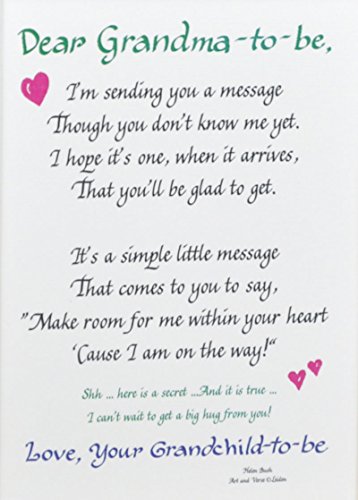 Dear Grandma-to-be,
I'm sending you a message
Though you don't know me yet.
I hope it's one, when it arrives,
That you'll be glad to get.
It's a simple little message
That comes to you to say,
"Make room for me within your heart
'Cause I am on the way!"
Shh ... here is a secret ...And it is true ...
I can't wait to get a big hug from you!
Love, Your Grandchild-to-be
Helen Bush
Art and Verse ©